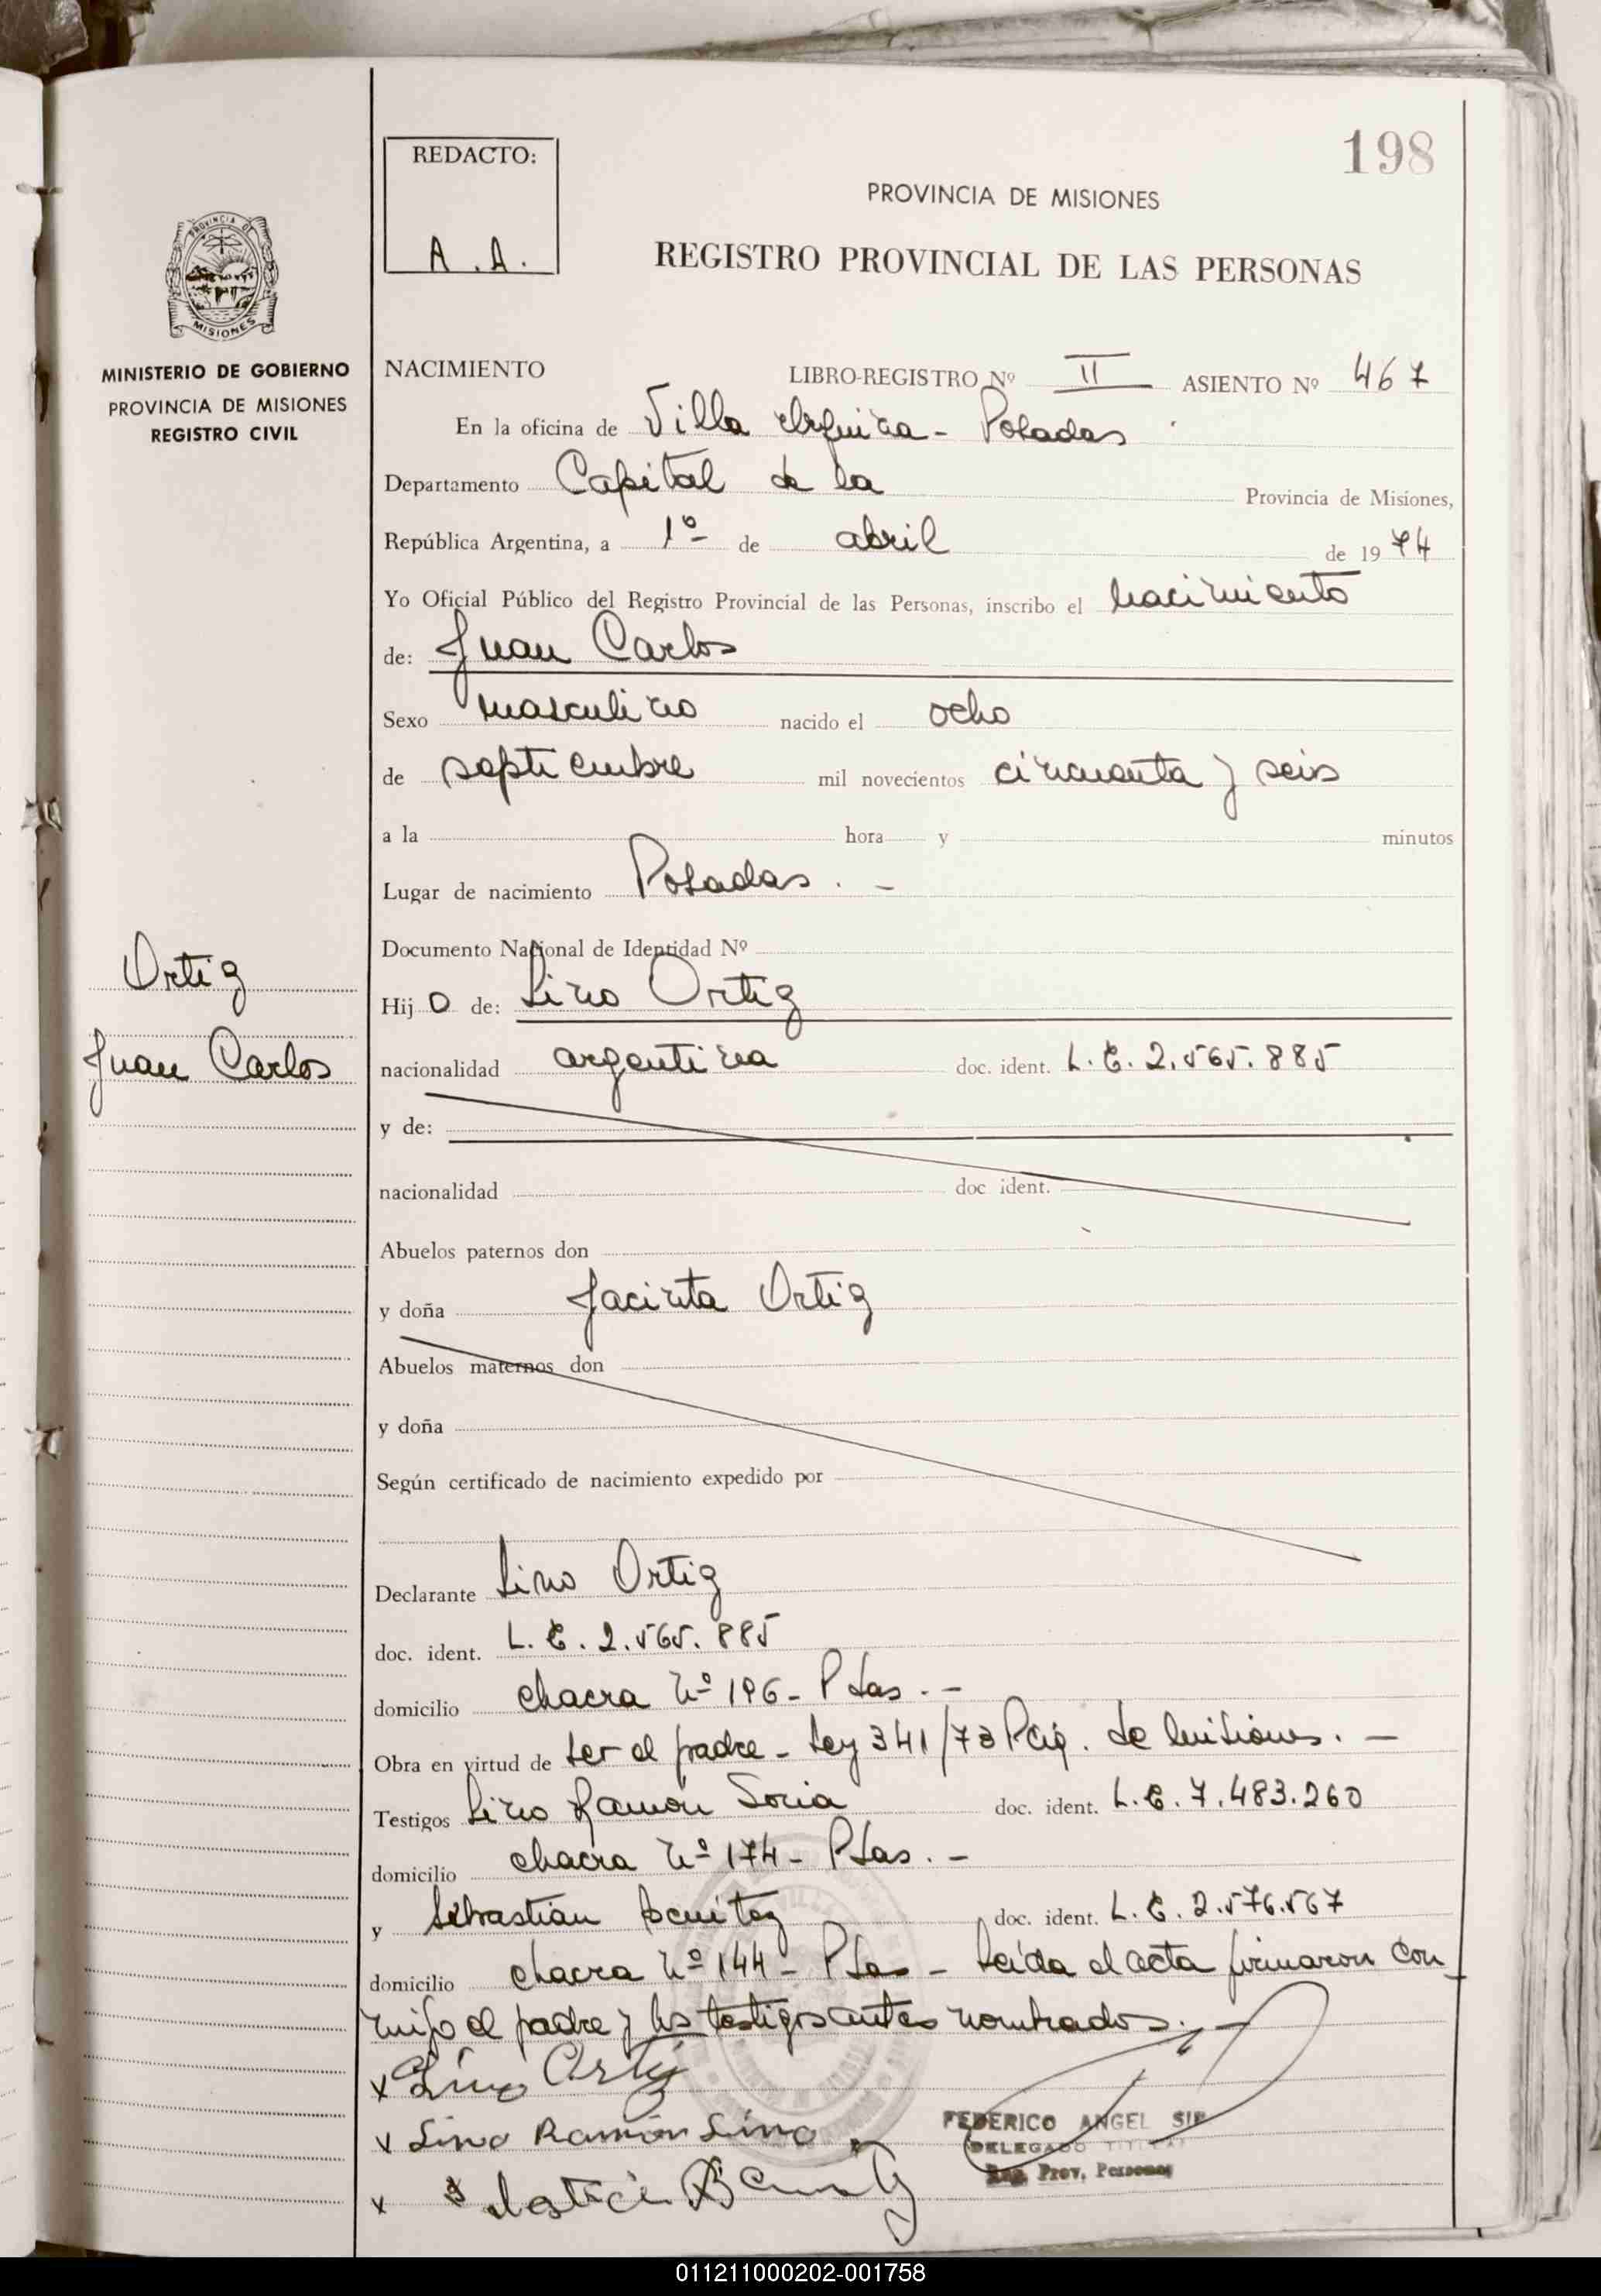 198
REDACTO:
A.A.
PROVINCIA DE MISIONES
REGISTRO PROVINCIAL DE LAS PERSONAS
PROVINCIA DE
MISIONES
MINISTERIO DE GOBIERNO
PROVINCIA DE MISIONES
REGISTRO CIVIL
NACIMIENTO LIBRO-REGISTRO Nº II ASIENTO Nº 467
En la oficina de Villa Urquiza - Posadas
Departamento Capital de la Provincia de Misiones,
República Argentina, a 1º de abril de 1974
Yo Oficial Público del Registro Provincial de las Personas, inscribo el nacimiento
de: Juan Carlos
Sexo masculino nacido el ocho
de septiembre mil novecientos cincuenta y seis
a la hora y minutos
Lugar de nacimiento Posadas.-
Documento Nacional de Identidad Nº
Ortiz
Juan Carlos
Hijo de: Lino Ortiz
nacionalidad argentina doc. ident. L.E. 2.565.885
y de:
nacionalidad doc ident.
Abuelos paternos don
y doña Jacinta Ortiz
Abuelos maternos don
y doña
Según certificado de nacimiento expedido por
Declarante Lino Ortiz
doc. ident. L.E. 2.565.885
domicilio chacra nº 196- Pdas.-
Obra en virtud de ser el padre - Ley 341/73 de Misiones.-
Testigos Lino Ramón Soria doc. ident. L.E. 7.483.260
domicilio chacra nº 174- Pdas.-
y Sebastián Benitez doc. ident. L.E. 2.576.567
domicilio chacra nº 144- Pdas - Leída el acta firmaron con
migo el padre y los testigos antes nombrados.-
x Lino Ortiz
x Lino Ramón
x
FEDERICO ANGEL
DELEGADO TITULAR
Reg. Prov. Personas
011211000202-001758